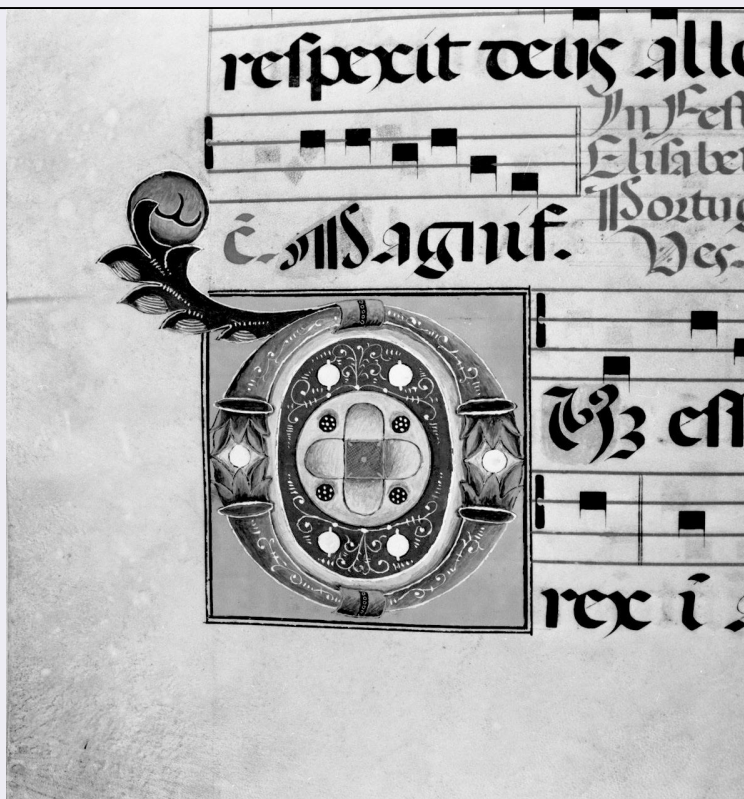 reſpexit deus allo
In Feſt
Eliſabet
Portug
Veſ.
c̄. Magnif.
DVz eſſ
rex ī